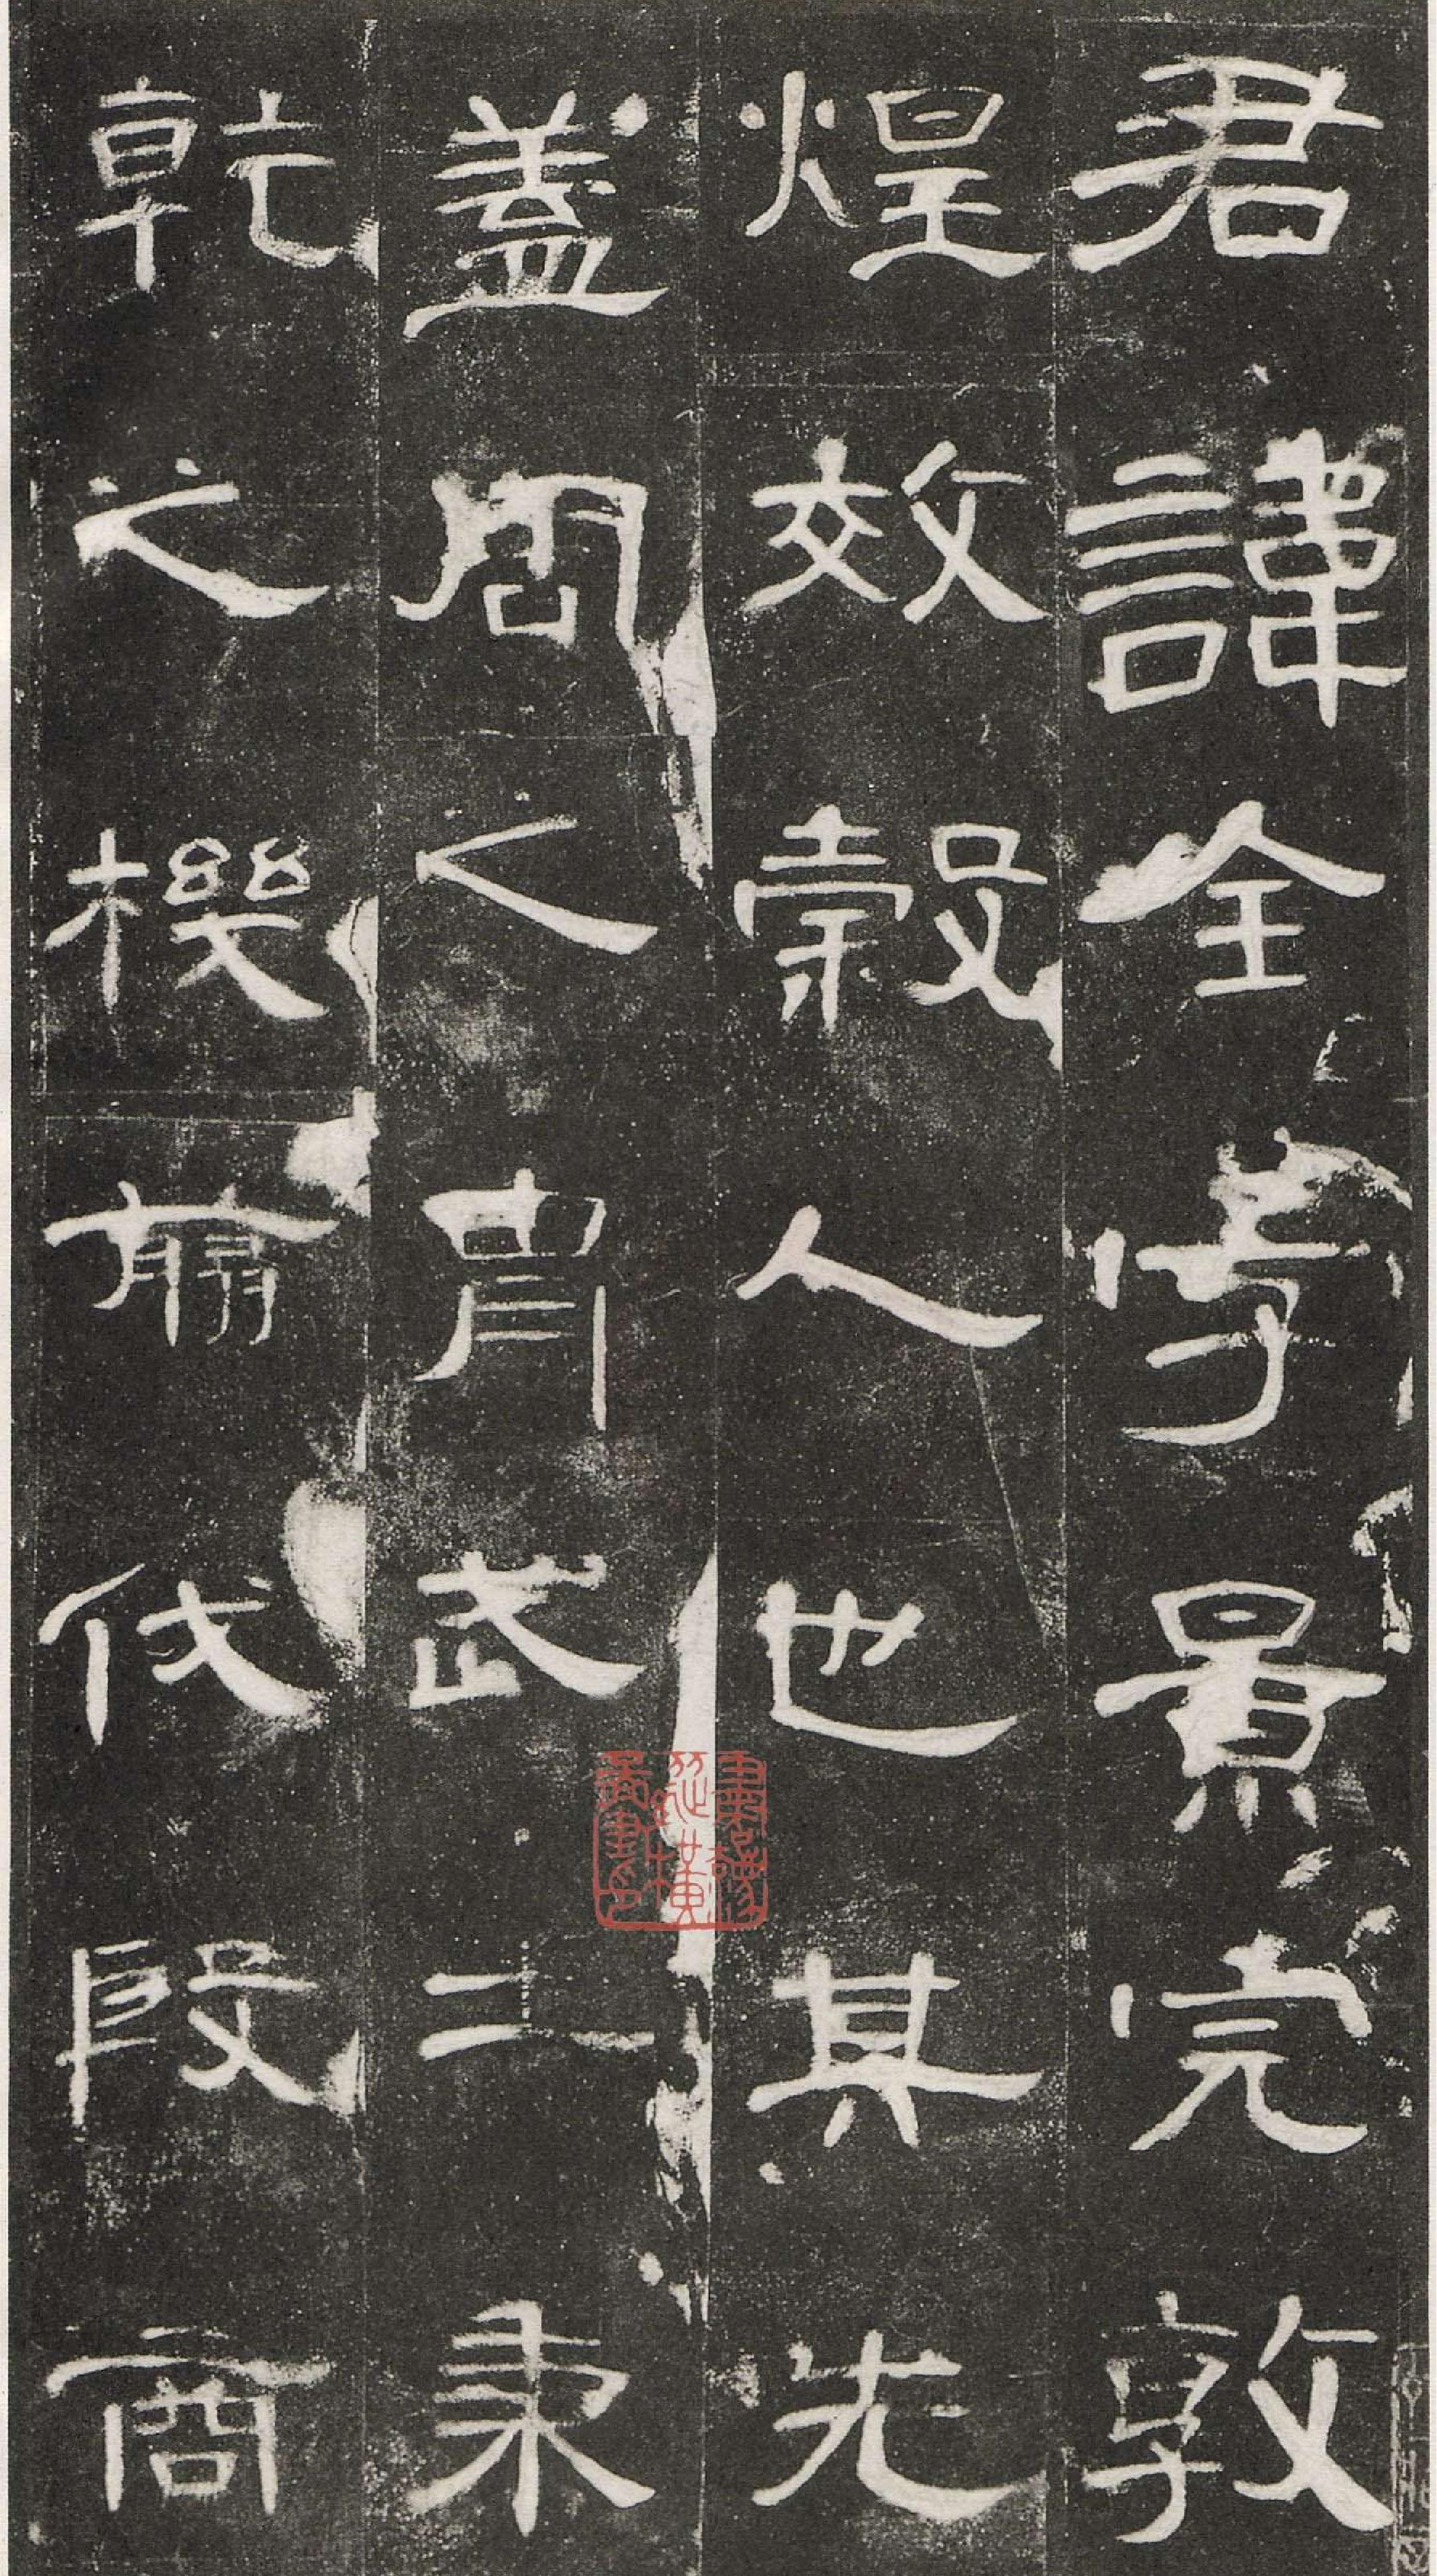 君諱全字景完敦
煌效穀人也其先
蓋周之冑武王秉
乾之機翦伐殷商